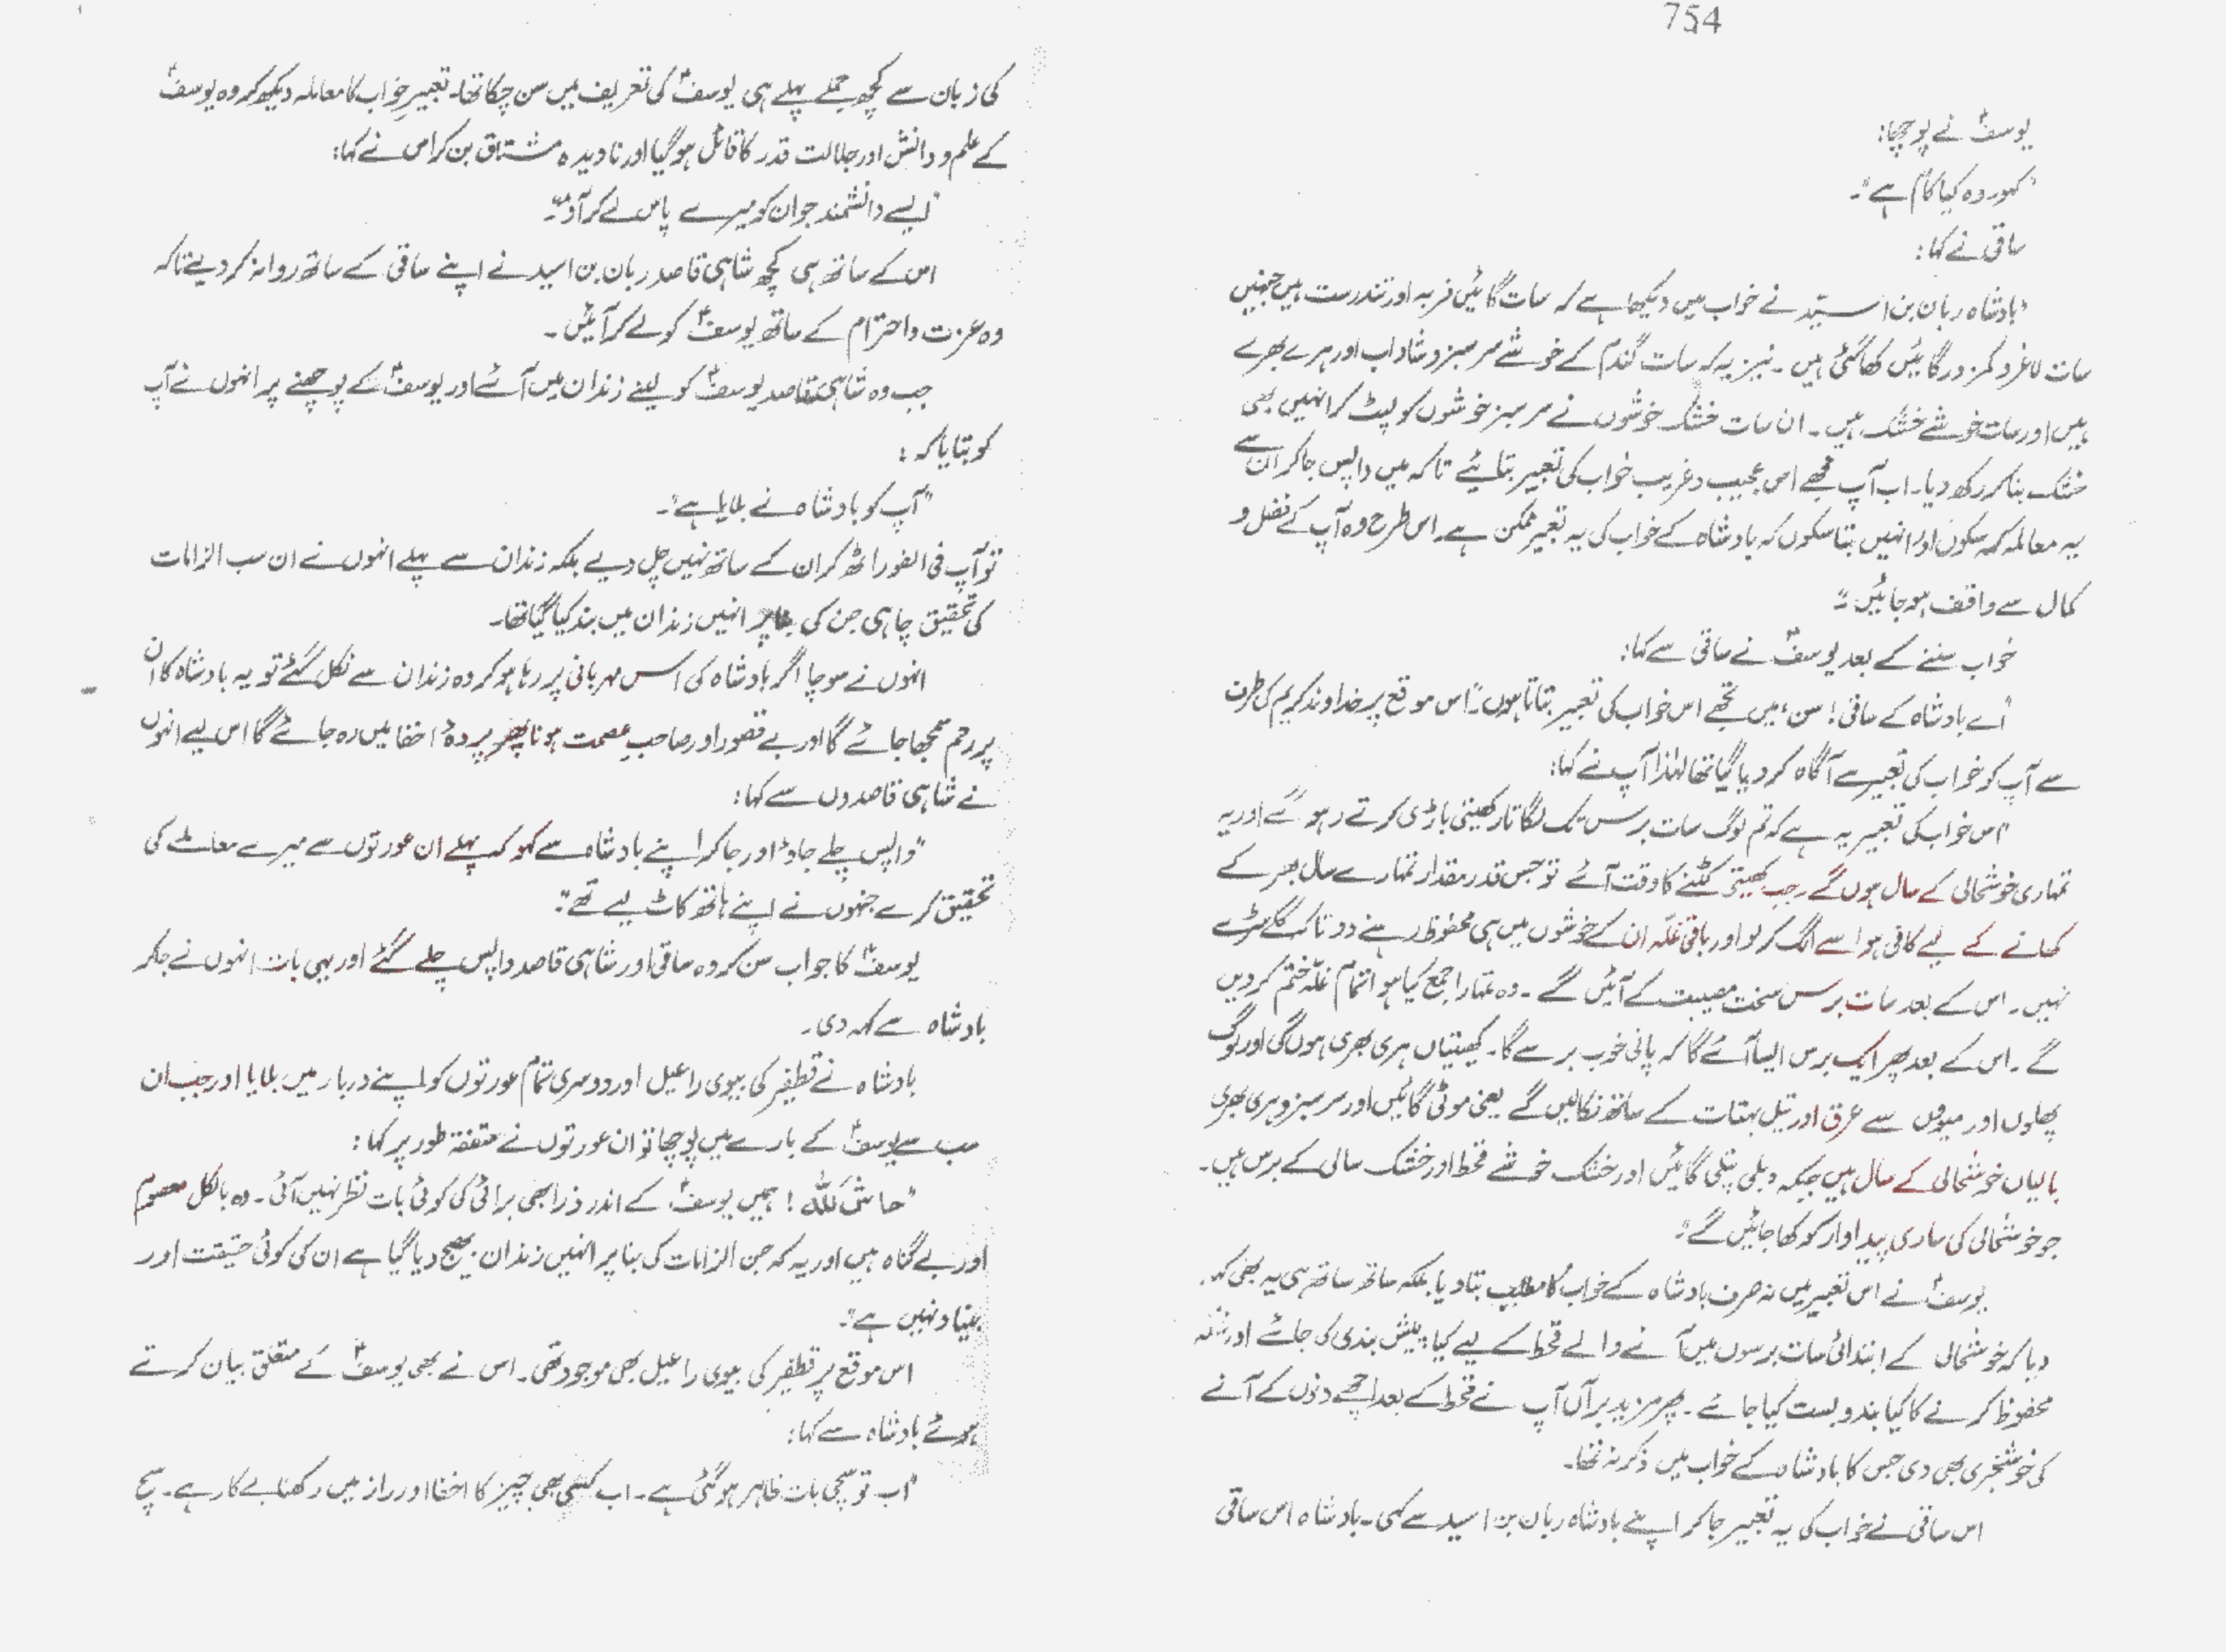 754
یوسفؑ نے پوچھا:
"کہو۔ وہ کیا کام ہے"۔
ساقی نے کہا:
"بادشاہ ریان بن اسید نے خواب میں دیکھا ہے کہ سات گائیں فربہ اور تندرست ہیں جنہیں
سات لاغر و کمزور گائیں کھا گئی ہیں۔ نیز یہ کہ سات گندم کے خوشے سرسبز و شاداب اور ہرے بھرے
ہیں اور سات خوشے خشک ہیں۔ ان سات خشک خوشوں نے سرسبز خوشوں کو لپٹ کر انہیں بھی
خشک بنا کر رکھ دیا۔ اب آپ مجھے اس عجیب و غریب خواب کی تعبیر بتائیے تاکہ میں واپس جا کر ان سے
یہ معاملہ کہہ سکوں اور انہیں بتا سکوں کہ بادشاہ کے خواب کی یہ تعبیر ممکن ہے۔ اس طرح وہ آپ کے فضل و
کمال سے واقف ہو جائیں"۔
خواب سننے کے بعد یوسفؑ نے ساقی سے کہا:
"اے بادشاہ کے ساقی! سن، میں تجھے اس خواب کی تعبیر بتاتا ہوں"۔ اس موقع پر خداوند کریم کی طرف
سے آپ کو خواب کی تعبیر سے آگاہ کر دیا گیا تھا لہٰذا آپ نے کہا:
"اس خواب کی تعبیر یہ ہے کہ تم لوگ سات برس تک لگاتار کھیتی باڑی کرتے رہو گے اور یہ
تمہاری خوشحالی کے سال ہوں گے۔ جب کھیتی کٹنے کا وقت آئے تو جس قدر مقدار تمہارے سال بھر کے
کھانے کے لیے کافی ہو اسے الگ کر لو اور باقی غلّہ ان کے خوشوں میں ہی محفوظ رہنے دو تاکہ گلے سڑے
نہیں۔ اس کے بعد سات برس سخت مصیبت کے آئیں گے۔ وہ تمہارا جمع کیا ہوا تمام غلّہ ختم کر دیں
گے۔ اس کے بعد پھر ایک برس ایسا آئے گا کہ پانی خوب برسے گا۔ کھیتیاں ہری بھری ہوں گی اور لوگ
پھلوں اور میووں سے عرق اور تیل بہتات کے ساتھ نکالیں گے یعنی موٹی گائیں اور سرسبز و ہری بھری
بالیاں خوشحالی کے سال ہیں جبکہ دبلی پتلی گائیں اور خشک خوشے قحط اور خشک سالی کے برس ہیں۔
جو خوشحالی کی ساری پیداوار کو کھا جائیں گے"۔
یوسفؑ نے اس تعبیر میں نہ صرف بادشاہ کے خواب کا مطلب بتا دیا بلکہ ساتھ ساتھ ہی یہ بھی کہہ
دیا کہ خوشحالی کے ابتدائی سات برسوں میں آنے والے قحط کے لیے کیا پیش بندی کی جائے اور غلّہ
محفوظ کرنے کا کیا بندوبست کیا جائے۔ پھر مزید برآں آپ نے قحط کے بعد اچھے دنوں کے آنے
کی خوشخبری بھی دی جس کا بادشاہ کے خواب میں ذکر نہ تھا۔
اس ساقی نے خواب کی یہ تعبیر جا کر اپنے بادشاہ ریان بن اسید سے کہی۔ بادشاہ اس ساقی
کی زبان سے کچھ جملے پہلے ہی یوسفؑ کی تعریف میں سن چکا تھا۔ تعبیرِ خواب کا معاملہ دیکھ کر وہ یوسفؑ
کے علم و دانش اور جلالت قدر کا قائل ہو گیا اور نادیدہ مشتاق بن کر اس نے کہا:
"ایسے دانشمند جوان کو میرے پاس لے کر آؤ"۔
اس کے ساتھ ہی کچھ شاہی قاصد ریان بن اسید نے اپنے ساقی کے ساتھ روانہ کر دیئے تاکہ
وہ عزت و احترام کے ساتھ یوسفؑ کو لے کر آئیں۔
جب وہ شاہی قاصد یوسفؑ کو لینے زندان میں آئے اور یوسفؑ کے پوچھنے پر انہوں نے آپ
کو بتایا کہ:
"آپ کو بادشاہ نے بلایا ہے"۔
تو آپ فی الفور اٹھ کر ان کے ساتھ نہیں چل دیے بلکہ زندان سے پہلے انہوں نے ان سب الزامات
کی تحقیق چاہی جن کی بنا پر انہیں زندان میں بند کیا گیا تھا۔
انہوں نے سوچا اگر بادشاہ کی اس مہربانی پر رہا ہو کر وہ زندان سے نکل گئے تو یہ بادشاہ کا ان
پر رحم سمجھا جائے گا اور بے قصور اور صاحبِ عصمت ہونا پھر پردۂ اخفا میں رہ جائے گا اس لیے انہوں
نے شاہی قاصدوں سے کہا:
"واپس چلے جاؤ اور جا کر اپنے بادشاہ سے کہو کہ پہلے ان عورتوں سے میرے معاملے کی
تحقیق کرے جنہوں نے اپنے ہاتھ کاٹ لیے تھے"۔
یوسفؑ کا جواب سن کر وہ ساقی اور شاہی قاصد واپس چلے گئے اور یہی بات انہوں نے جا کر
بادشاہ سے کہہ دی۔
بادشاہ نے قطفیر کی بیوی راعیل اور دوسری تمام عورتوں کو اپنے دربار میں بلایا اور جب ان
سب سے یوسفؑ کے بارے میں پوچھا تو ان عورتوں نے متفقہ طور پر کہا:
"حاشَ لِلّٰہ! ہمیں یوسفؑ کے اندر ذرا بھی برائی کی کوئی بات نظر نہیں آئی۔ وہ بالکل معصوم
اور بے گناہ ہیں اور یہ کہ جن الزامات کی بنا پر انہیں زندان بھیج دیا گیا ہے ان کی کوئی حقیقت اور
بنیاد نہیں ہے"۔
اس موقع پر قطفیر کی بیوی راعیل بھی موجود تھی۔ اس نے بھی یوسفؑ کے متعلق بیان کرتے
ہوئے بادشاہ سے کہا:
"اب تو سچی بات ظاہر ہو گئی ہے۔ اب کسی بھی چیز کا اخفا اور راز میں رکھنا بے کار ہے۔ سچ